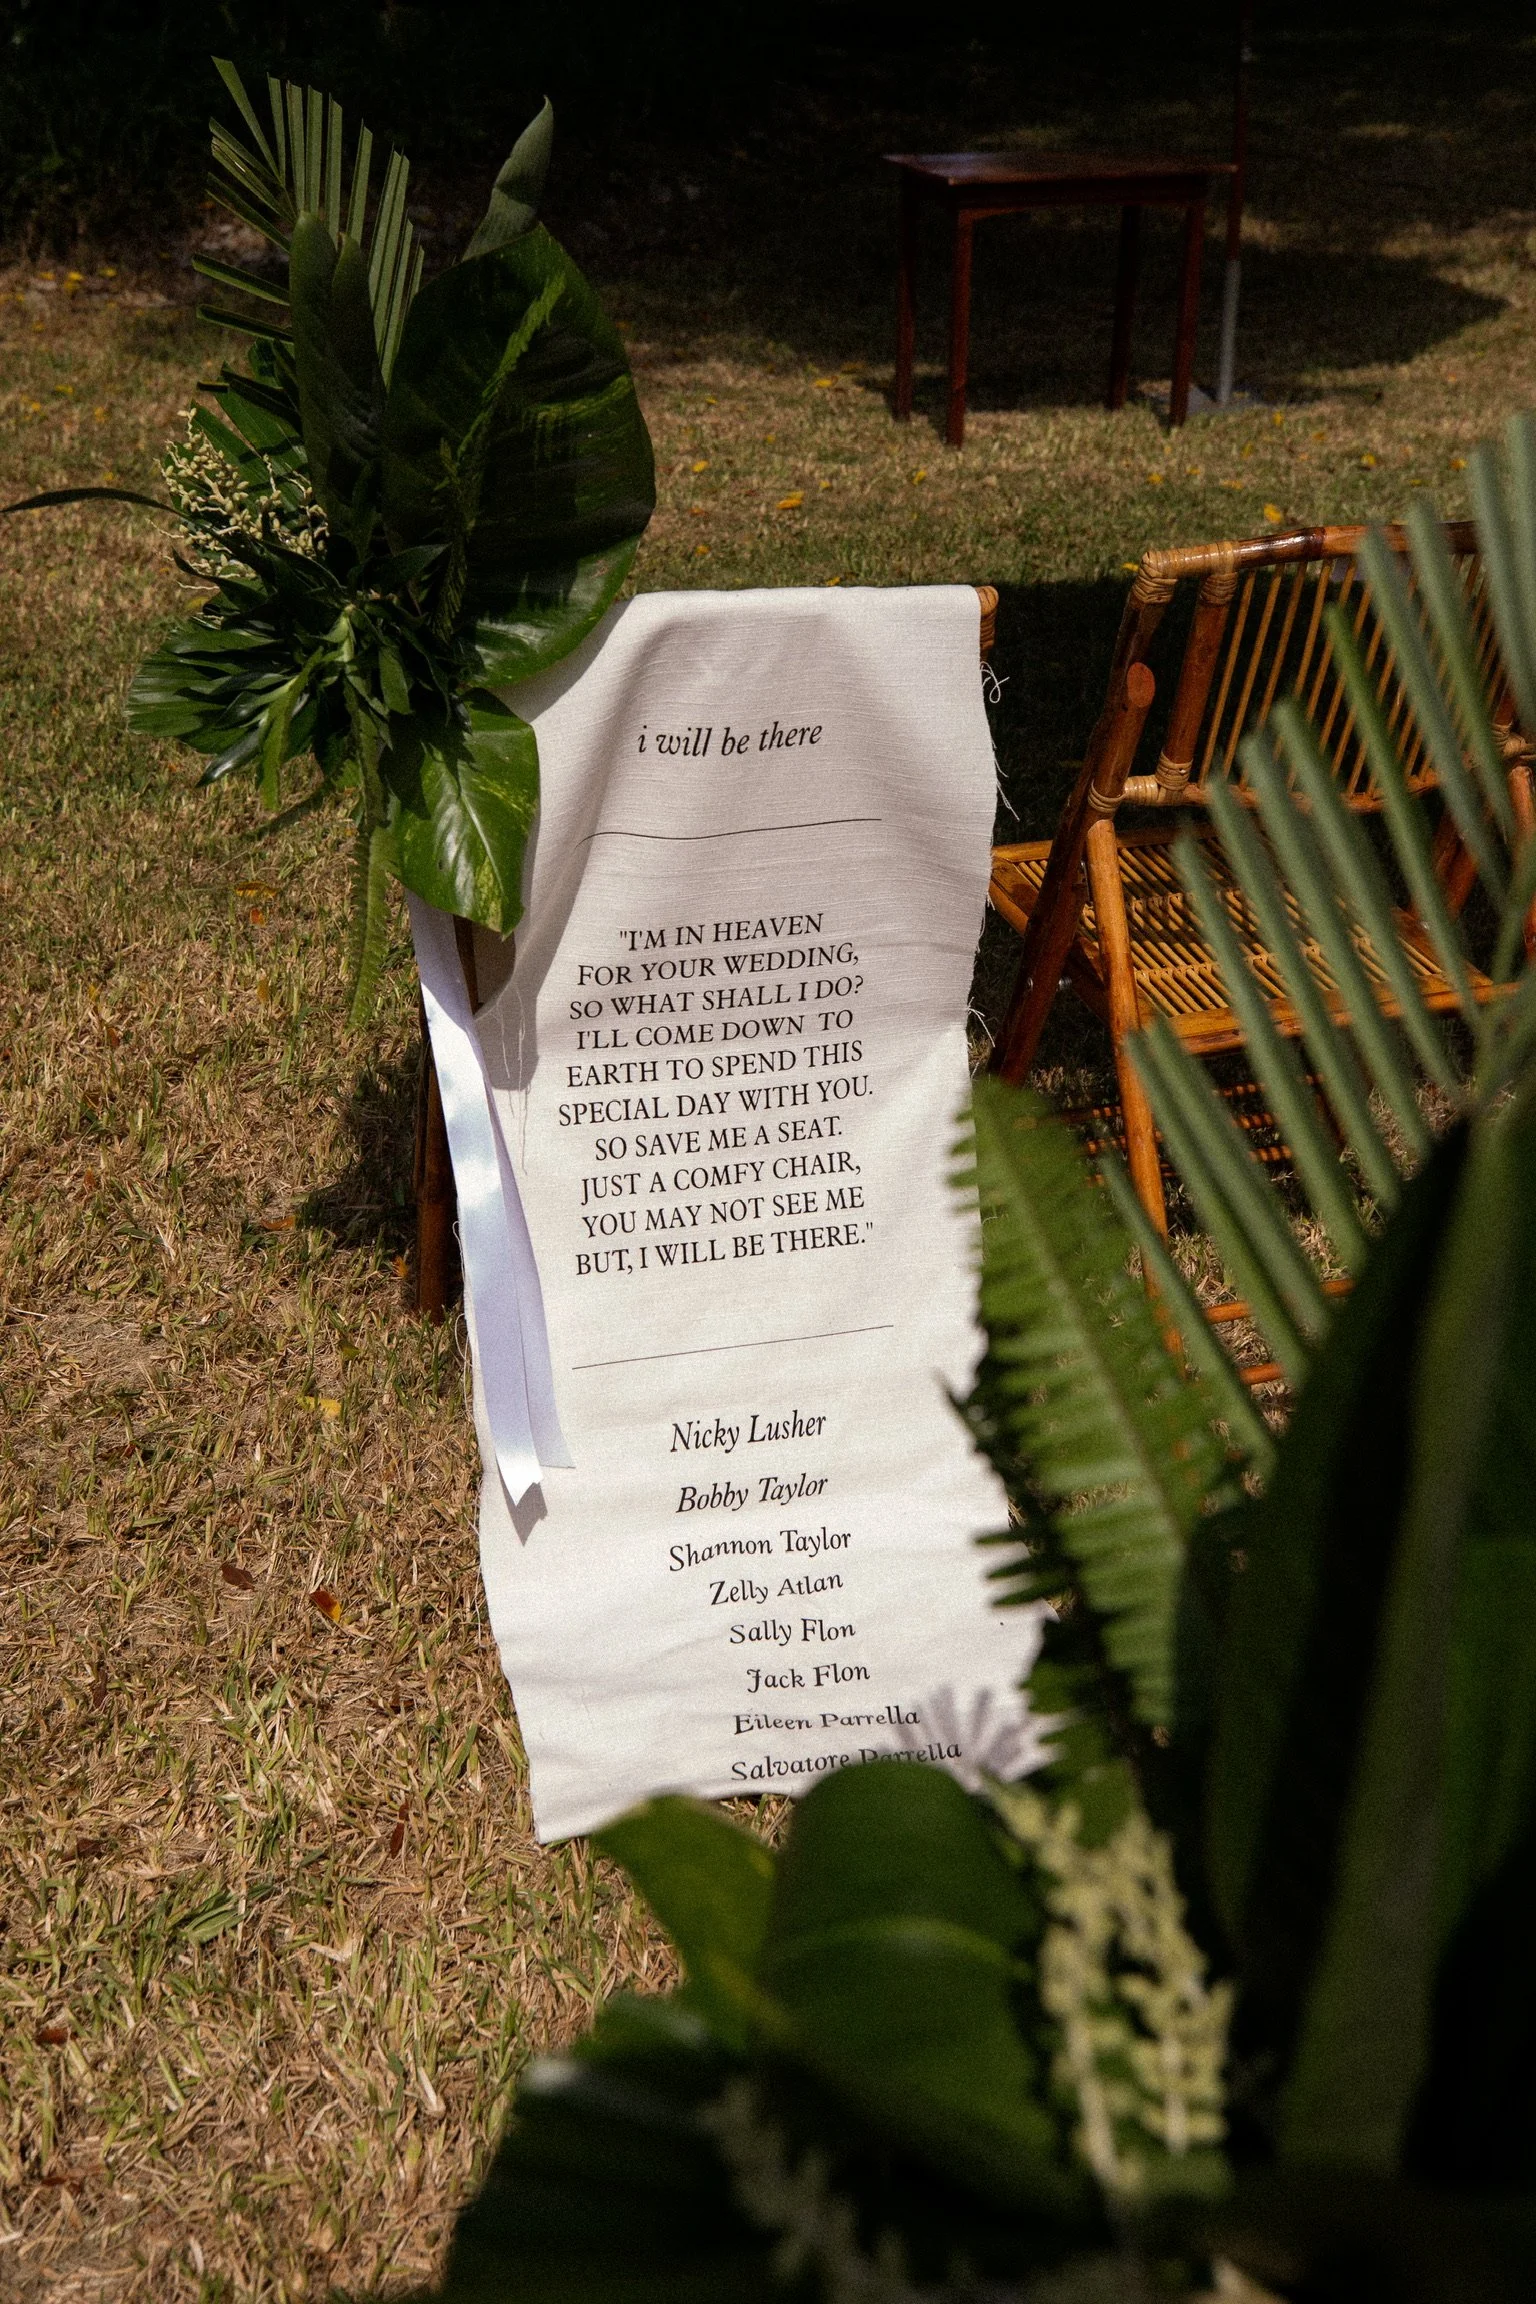 i will be there
"I'M IN HEAVEN
FOR YOUR WEDDING,
SO WHAT SHALL I DO?
I'LL COME DOWN TO
EARTH TO SPEND THIS
SPECIAL DAY WITH YOU.
SO SAVE ME A SEAT.
JUST A COMFY CHAIR,
YOU MAY NOT SEE ME
BUT, I WILL BE THERE."
Nicky Lusher
Bobby Taylor
Shannon Taylor
Zelly Atlan
Sally Flon
Jack Flon
Eileen Parrella
Salvatore Parrella